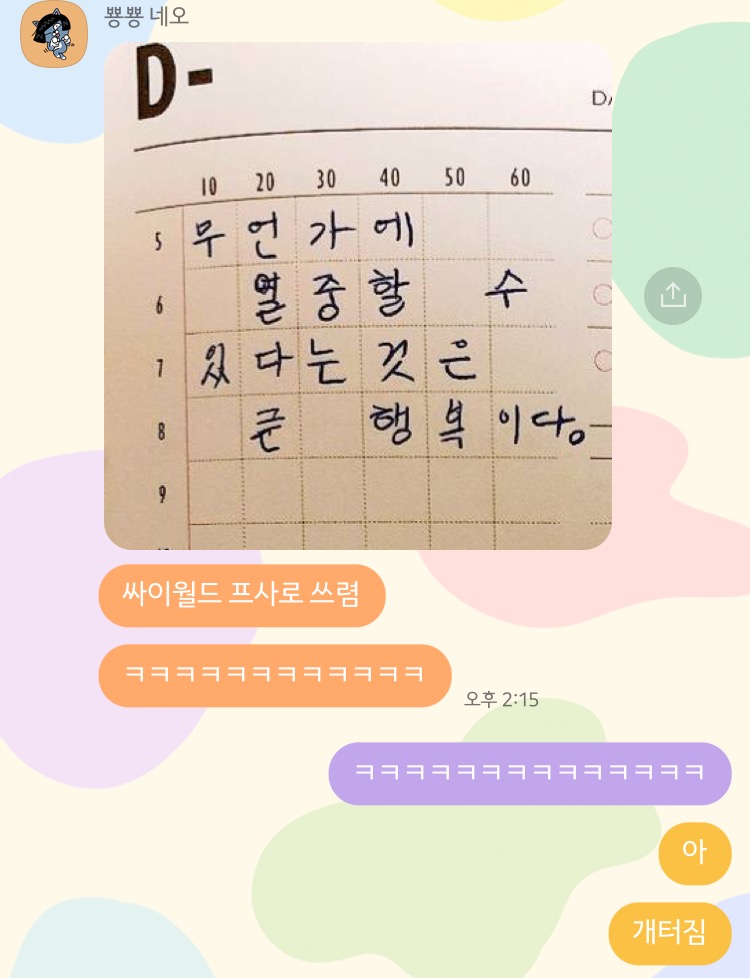 뿅뿅 네오
D-
DA
10 20 30 40 50 60
5 무언가에
6 열중할 수
7 있다는 것은
8 큰 행복이다。
9
싸이월드 프사로 쓰렴
ㅋㅋㅋㅋㅋㅋㅋㅋㅋㅋㅋㅋ
오후 2:15
ㅋㅋㅋㅋㅋㅋㅋㅋㅋㅋㅋㅋㅋㅋ
아
개터짐